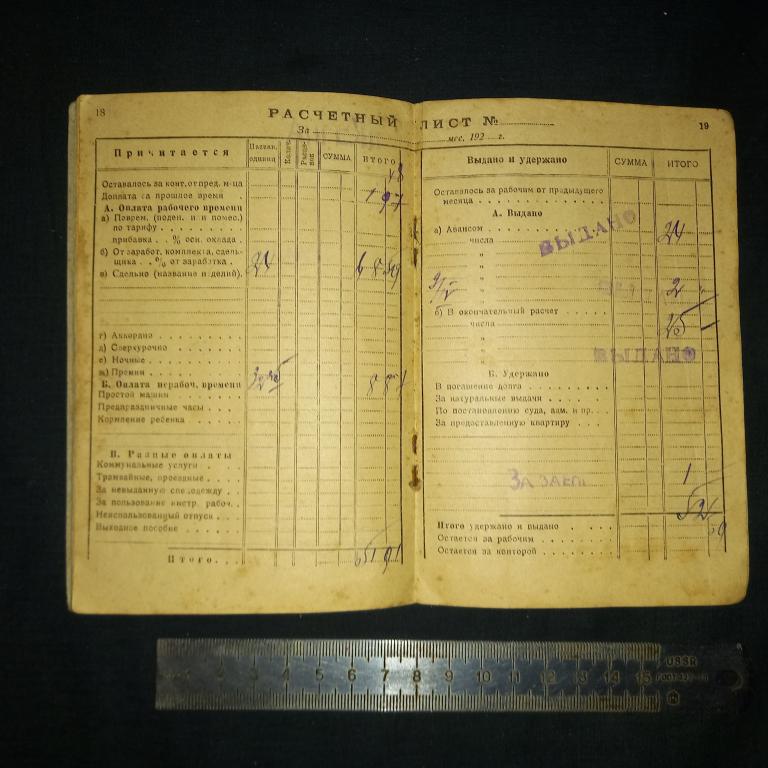 18
РАСЧЕТНЫЙ ЛИСТ №
19
За
мес. 192 г.
Причитается
Назван. единиц
Колич.
СУММА
ИТОГО
Оставалось за конт. от пред. м-ца
Доплата за прошлое время
1 97
А. Оплата рабочего времени
а) Поврем. (поден. или помес.)
по тарифу
прибавка . . % осн. оклада .
б) От заработ. комплекта, сдель-
щика . . % от заработка .
24
в) Сдельно (название изделий).
г) Аккордно
д) Сверхурочно
е) Ночные
ж) Премии
Б. Оплата нерабоч. времени
Простой машин
Предпраздничные часы
Кормление ребенка
В. Разные оплаты
Коммунальные услуги
Трамвайные, проездные
За невыданную спецодежду
За пользование инстр. рабоч.
Неиспользованный отпуск
Выходное пособие
Итого
Выдано и удержано
СУММА
ИТОГО
Оставалось за рабочим от предыдущего
месяца
А. Выдано
а) Авансом
24
числа
ВЫДАНО
"
"
"
2
"
б) В окончательный расчет
25
числа
"
"
ВЫДАНО
Б. Удержано
В погашение долга
За натуральные выдачи
По постановлению суда, взм. и пр.
За предоставленную квартиру
За заем
1
52 50
Итого удержано и выдано
Остается за рабочим
Остается за конторой
1 2 3 4 5 6 7 8 9 10 11 12 13 14 15
USSR
ГОСТ 427-75